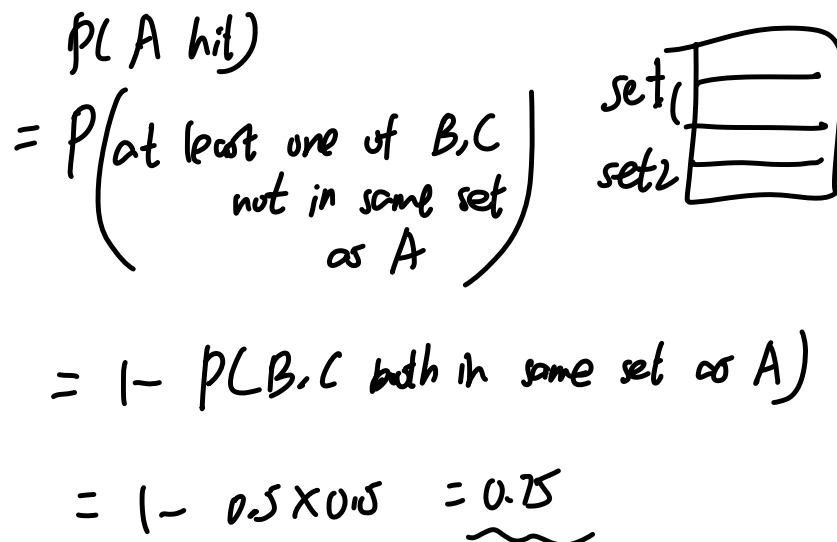 P( A hit)
= P(at least one of B,C
not in same set
as A)
set1
set2
= 1- P(B,C both in same set as A)
= 1- 0.5X0.5 = 0.75